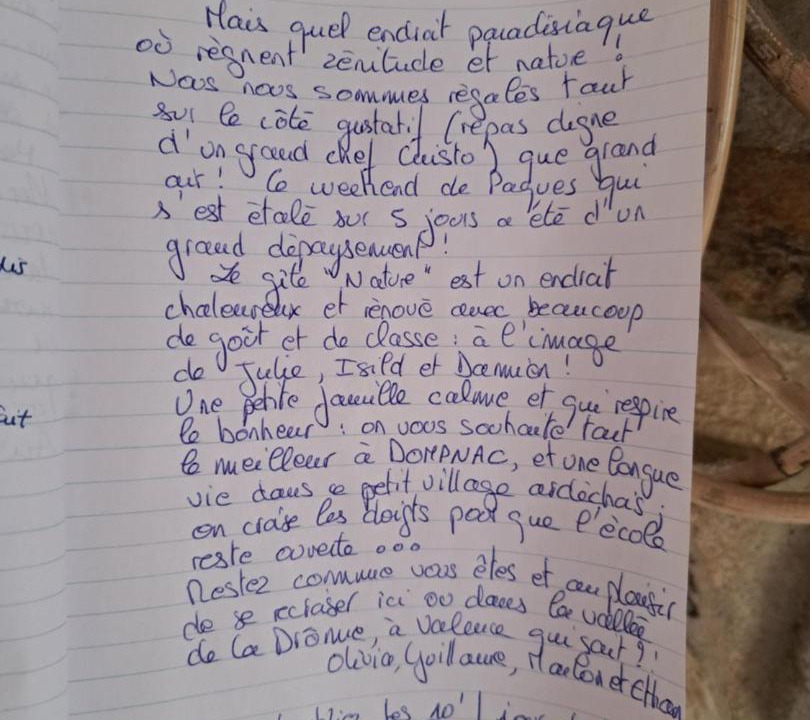 Mais quel endroit paradisiaque
où règnent zénitude et nature !
Nous nous sommes régalés tant
sur le côté gustatif (repas digne
d'un grand chef Cuisto) que grand
air ! Ce weekend de Pâques qui
s'est étalé sur 5 jours a été d'un
grand dépaysement !
Le gîte "Nature" est un endroit
chaleureux et rénové avec beaucoup
de goût et de classe : à l'image
de Julie, Isild et Damien !
Une petite famille calme et qui respire
le bonheur : on vous souhaite tout
le meilleur à DOMPNAC, et une longue
vie dans ce petit village ardéchois ;
on croise les doigts pour que l'école
reste ouverte ...
Restez comme vous êtes et au plaisir
de se recroiser ici ou dans la vallée
de la Drôme, à Valence qui sait ?!
Olivia, Guillaume, Marlon et Ethan
les 10